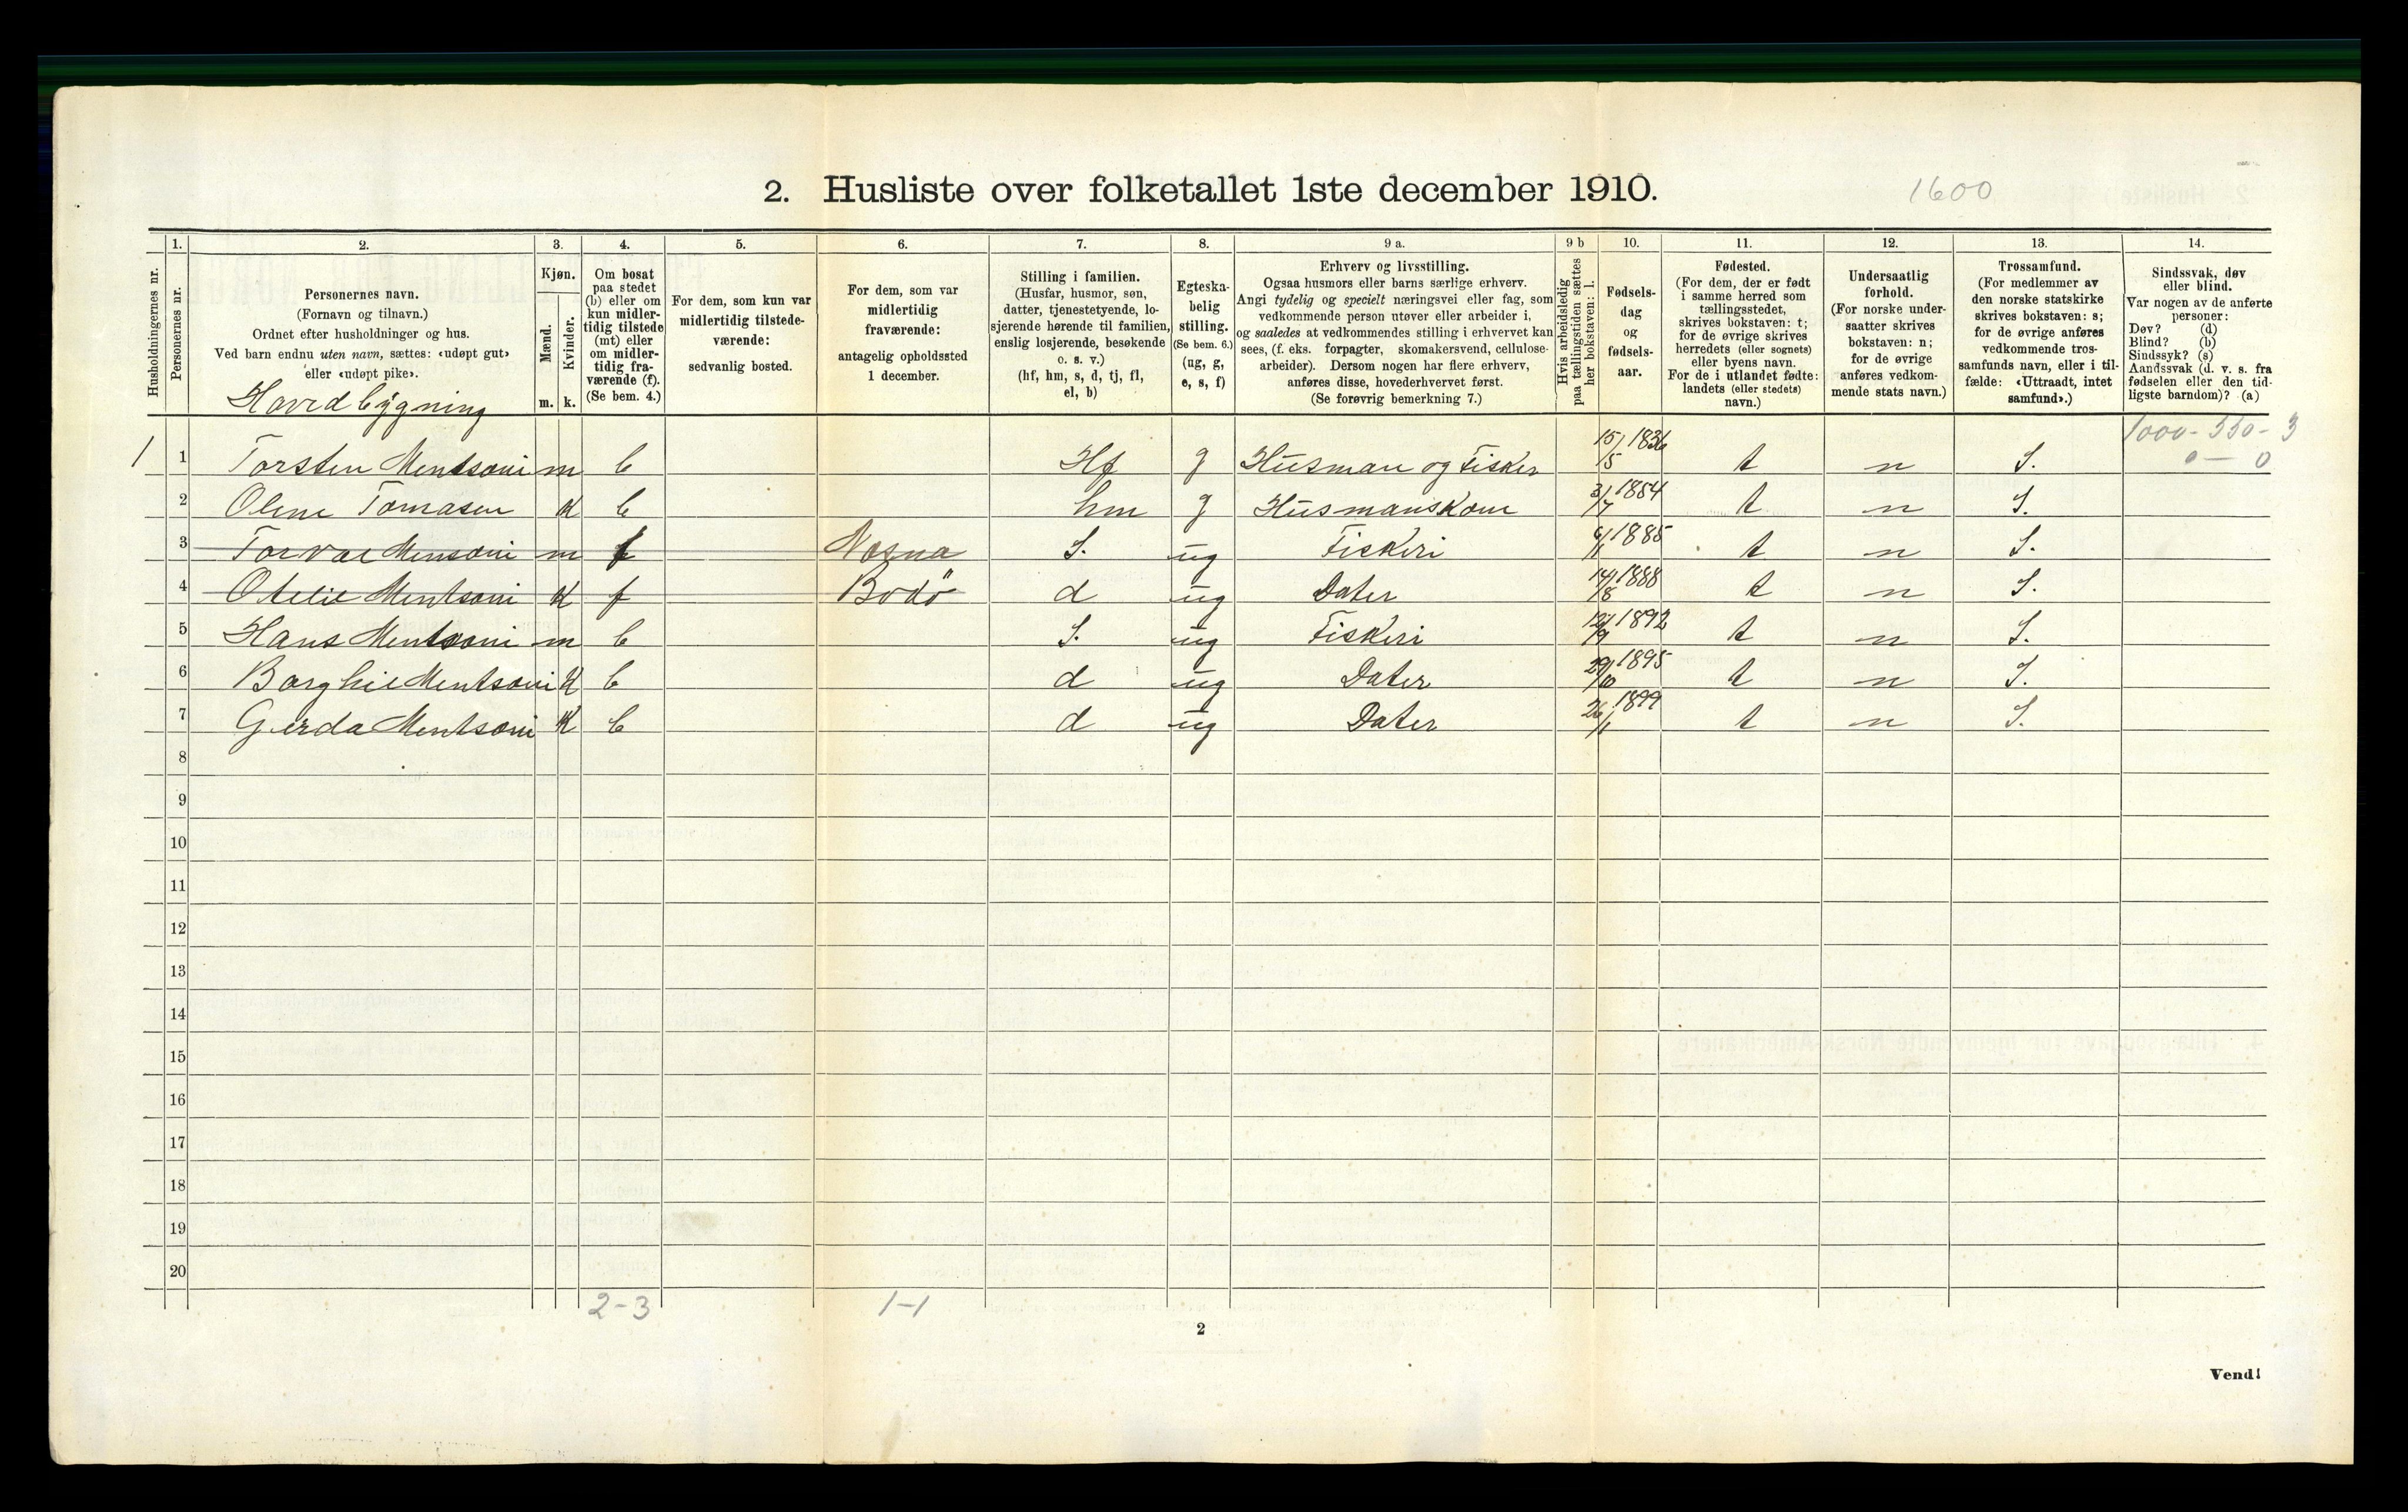 2. Husliste over folketallet 1ste december 1910.
1600
Husholdningernes nr.
1.
Personernes nr.
2.
Personernes navn.
(Fornavn og tilnavn.)
Ordnet efter husholdninger og hus.
Ved barn endnu uten navn, sættes: «udøpt gut»
eller «udøpt pike».
Hovedbygning
3.
Kjøn.
Mænd.
Kvinder.
m. k.
4.
Om bosat
paa stedet
(b) eller om
kun midler-
tidig tilstede
(mt) eller
om midler-
tidig fra-
værende (f).
(Se bem. 4.)
5.
For dem, som kun var
midlertidig tilstede-
værende:
sedvanlig bosted.
6.
For dem, som var
midlertidig
fraværende:
antagelig opholdssted
1 december.
7.
Stilling i familien.
(Husfar, husmor, søn,
datter, tjenestetyende, lo-
sjerende hørende til familien,
enslig losjerende, besøkende
o. s. v.)
(hf, hm, s, d, tj, fl,
el, b)
8.
Egteska-
belig
stilling.
(Se bem. 6.)
(ug, g,
e, s, f)
9 a.
Erhverv og livsstilling.
Ogsaa husmors eller barns særlige erhverv.
Angi tydelig og specielt næringsvei eller fag, som
vedkommende person utøver eller arbeider i,
og saaledes at vedkommendes stilling i erhvervet kan
sees, (f. eks. forpagter, skomakersvend, cellulose-
arbeider). Dersom nogen har flere erhverv,
anføres disse, hovederhvervet først.
(Se forøvrig bemerkning 7.)
9 b
Hvis arbeidsledig
paa tællingstiden sættes
her bokstaven: l.
10.
Fødsels-
dag
og
fødsels-
aar.
11.
Fødested.
(For dem, der er født
i samme herred som
tællingsstedet,
skrives bokstaven: t;
for de øvrige skrives
herredets (eller sognets)
eller byens navn.
For de i utlandet fødte:
landets (eller stedets)
navn.)
12.
Undersaatlig
forhold.
(For norske under-
saatter skrives
bokstaven: n;
for de øvrige
anføres vedkom-
mende stats navn.)
13.
Trossamfund.
(For medlemmer av
den norske statskirke
skrives bokstaven: s;
for de øvrige anføres
vedkommende tros-
samfunds navn, eller i til-
fælde: «Uttraadt, intet
samfund».)
14.
Sindssvak, døv
eller blind.
Var nogen av de anførte
personer:
Døv? (d)
Blind? (b)
Sindssyk? (s)
Aandssvak (d. v. s. fra
fødselen eller den tid-
ligste barndom)? (a)
1000-550-3
0 — 0
1 1 Torsten Mentsoni m b Hf g Husman og Fisker 15/5 1836 t n S.
2 Olene Tomasen k b hm g Husmanskone 31/7 1854 t n S.
3 Torvae Mensoni m f Nesna S. ug Fiskeri 6/11 1885 t n S.
4 Otelie Mentsoni k f Bodö d ug Dater 14/8 1888 t n S.
5 Hans Mentsoni m b S. ug Fiskeri 12/9 1892 t n S.
6 Borghie Mentsoni k b d ug Dater 29/10 1895 t n S.
7 Gerda Mentsoni k b d ug Dater 26/1 1899 t n S.
8
9
10
11
12
13
14
15
16
17
18
19
20
2-3
1-1
2
Vend!